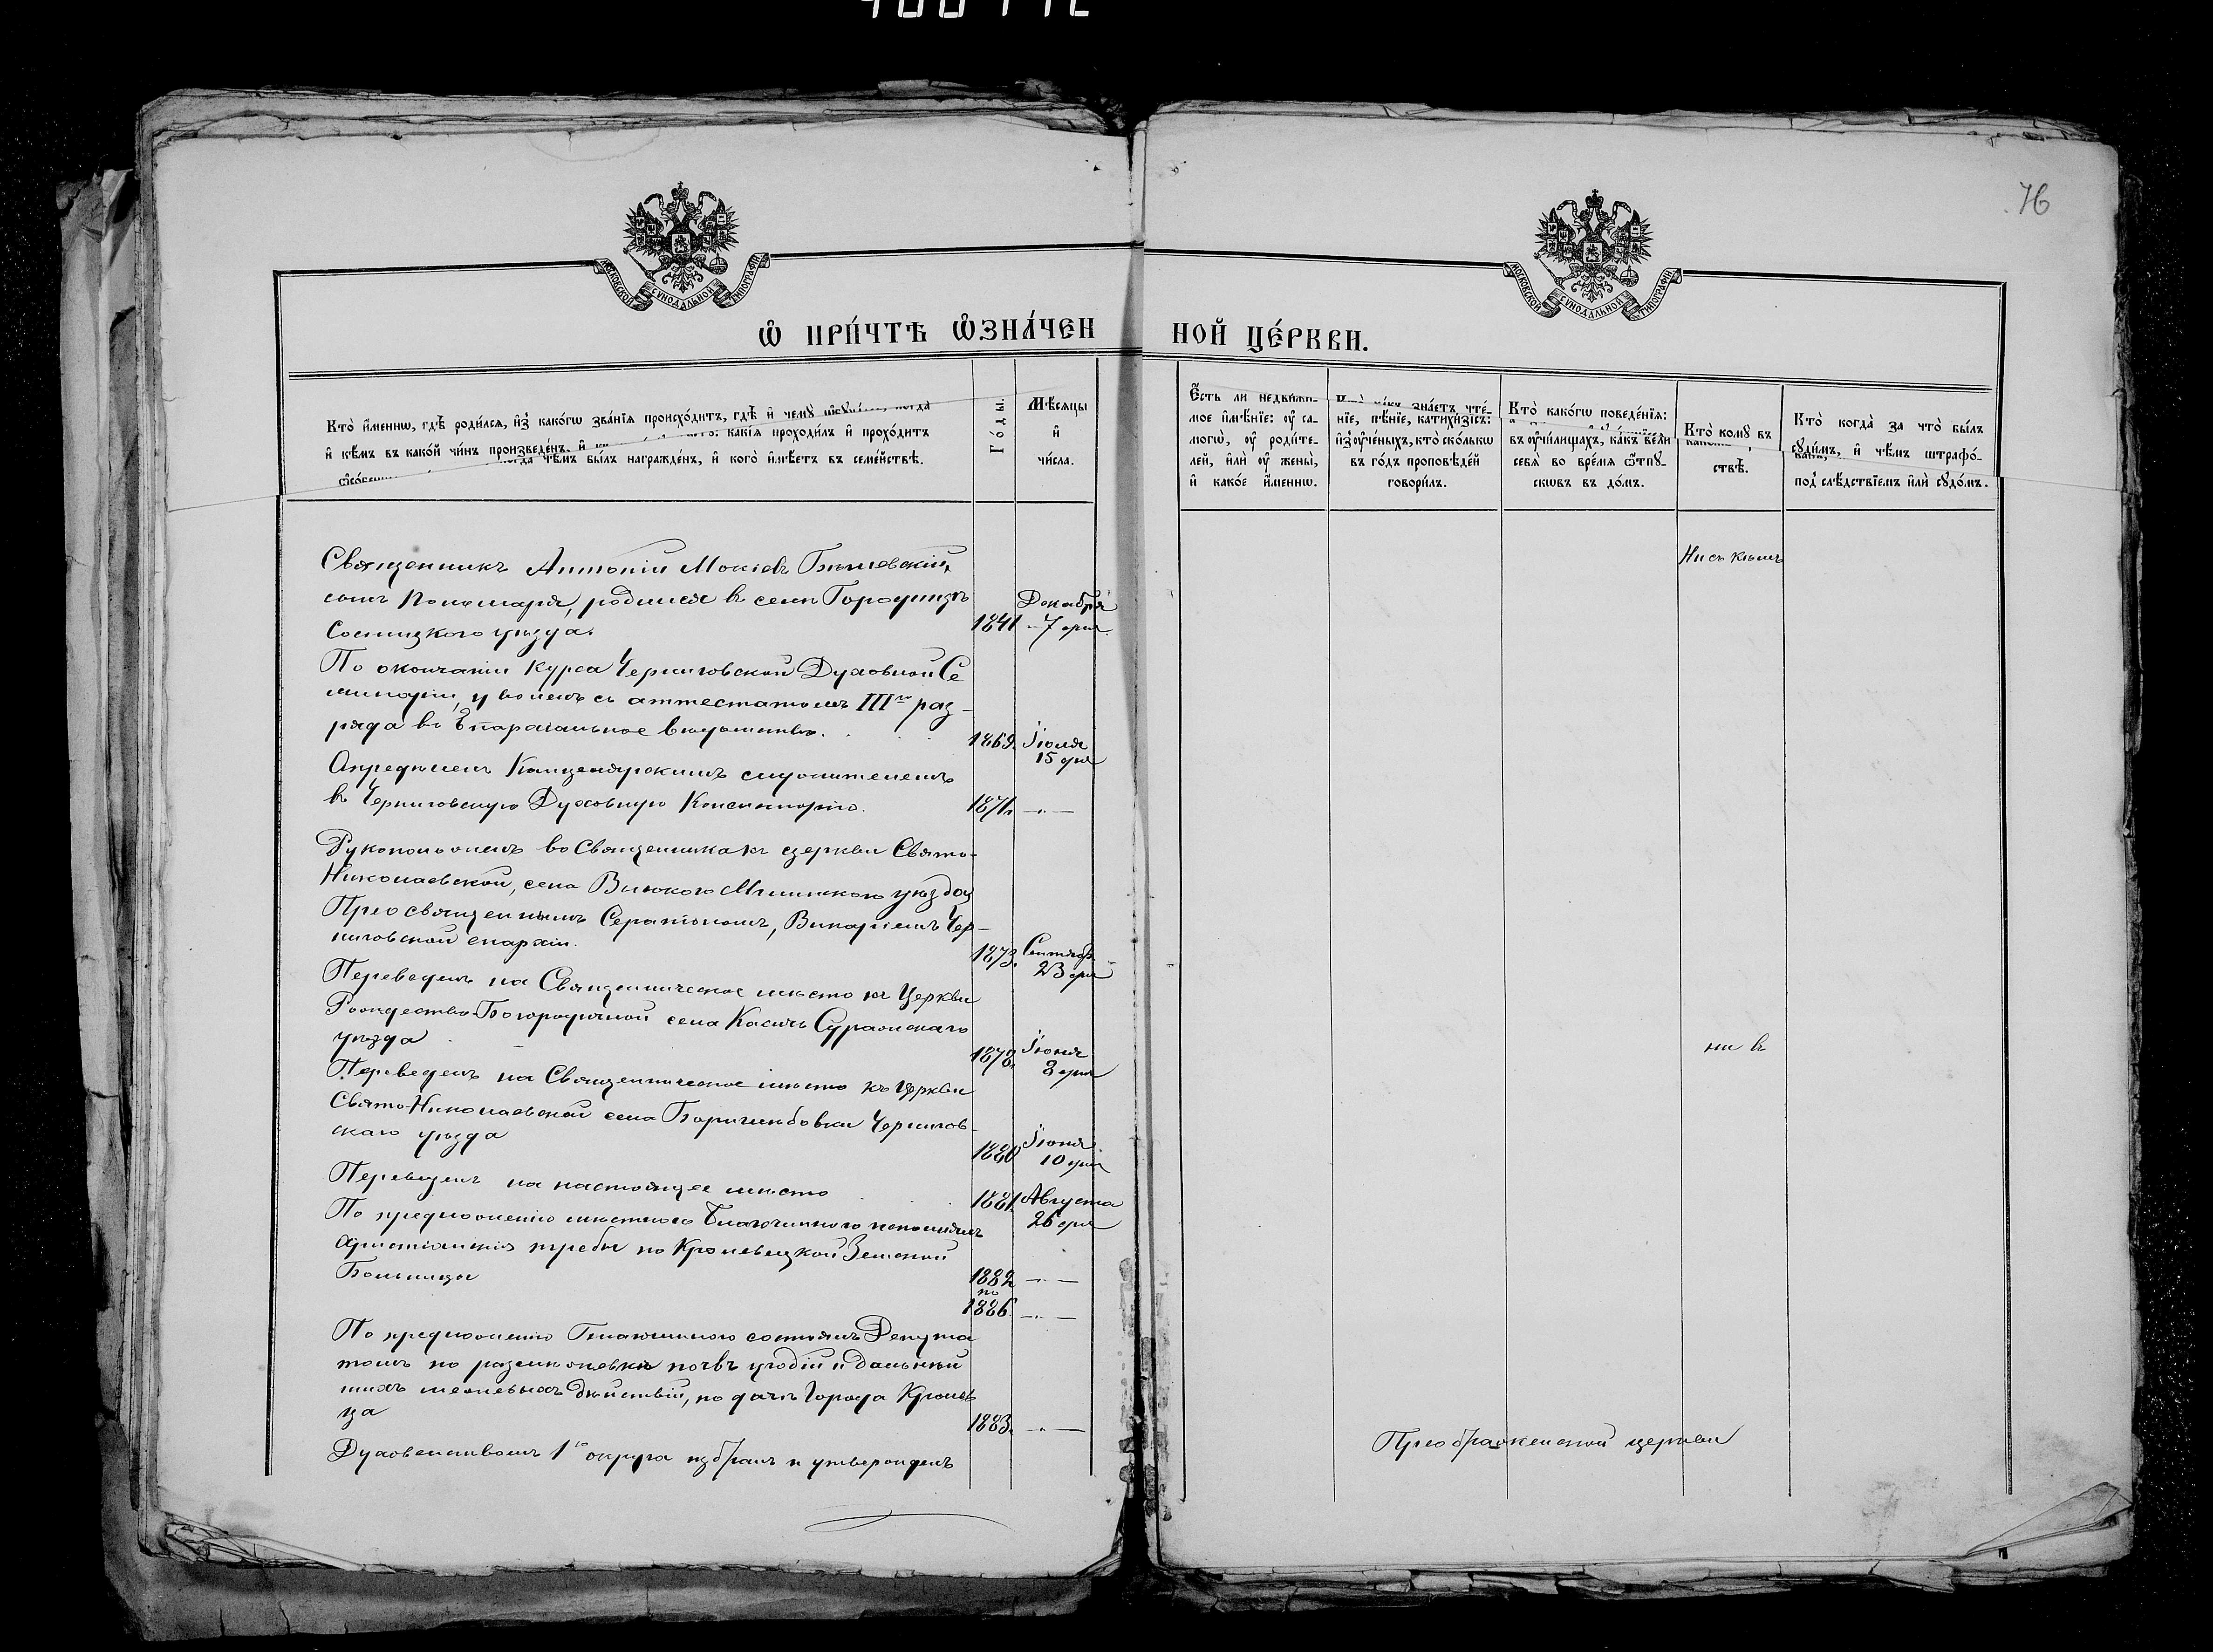 76
МОСКОВСКОЙ СѴНОДАЛЬНОЙ ТИПОГРАФІИ
МОСКОВСКОЙ СѴНОДАЛЬНОЙ ТИПОГРАФІИ
Ѡ ПРИ́ЧТѢ ѠЗНА́ЧЕН НОЙ ЦЕ́РКВИ.
Кто̀ и҆́менно, гдѣ̀ роди́лся, и҆з̾ како́гѡ зва́нїя происхо́дитъ, гдѣ̀ и҆ чемꙋ̀
и҆ кѣ́мъ въ како́й чи́нъ произведе́нъ, и҆ какі́я проходи́лъ и҆ прохо́дитъ
чѣ́мъ бы́лъ награжде́нъ, и҆ кого̀ и҆мѣ́етъ въ семе́йствѣ.
Го́ды.
Мѣ́сяцы
и҆
чи́сла.
Є҆́сть ли недви́жи-
мое и҆мѣ́нїе: ᲂу҆ са-
могѡ̀, ᲂу҆ роди́те-
лей, и҆лѝ ᲂу҆ жены̀,
и҆ како́е и҆́менно.
зна́етъ чте́-
нїе, пѣ́нїе, катихи́зїсъ:
и҆з̾ ᲂу҆че́ныхъ, кто̀ ско́лькѡ
въ го́дъ проповѣ́дей
говори́лъ.
Кто̀ како́гѡ поведе́нїя:
въ ᲂу҆чи́лищахъ, ка́къ велѝ
себя̀ во вре́мя ѿпꙋ-
скѡвъ въ до́мъ.
Кто̀ комꙋ̀ въ
ствѣ̀.
Кто̀ когда̀ за что̀ бы́лъ
сꙋди́мъ, и҆ чѣ́мъ штрафо́-
под̾ слѣ́дствїемъ и҆лѝ сꙋдо́мъ.
Священникъ Антоній Мокіевъ
сынъ Пономаря, родился въ селѣ Городищѣ
Сосницкого уѣзда. 1841 Декабря 7 дня.
По окончаніи Курса Черниговской Духовной Се
минаріи, уволенъ съ аттестатомъ IIIго раз-
ряда въ Епархіальное вѣдомство. 1869. Іюля 15 дня
Опредѣленъ Канцелярскимъ служителемъ
въ Черниговскую Духовную Консисторію. 1871.
Рукоположенъ во Священника къ церкви Свято-
Николаевской, села Высокого Мглинского уѣзда
Преосвященнымъ Серапіономъ, Викаріемъ Чер-
ниговской епархіи. 1873. Сентября 23 дня
Переведенъ на Священническое мѣсто къ Церкви
Рождество-Богородичной села Касичъ Суражскаго
уѣзда 1878. Іюня 8 дня
Переведенъ на Священническое мѣсто къ Церкви
Свято-Николаевской села Чернигов-
скаго уѣзда 1880 Іюня 10 дня
Переведенъ на настоящее мѣсто 1881. Августа 26 дня
По предложенію мѣстного Благочинного исполнялъ
христіанскія требы по Кролевецкой Земской
Больницы 1882 по 1886.
По предложенію Благочинного состоялъ Депута
томъ по размежовкѣ почвъ угодій и дальнѣй
шихъ межевыхъ дѣйствій, по дачѣ города Кролев
ца 1883.
Духовенствомъ 1го округа избранъ и утвержденъ
Ни съ кѣмъ
ни въ
Преображенской церкви